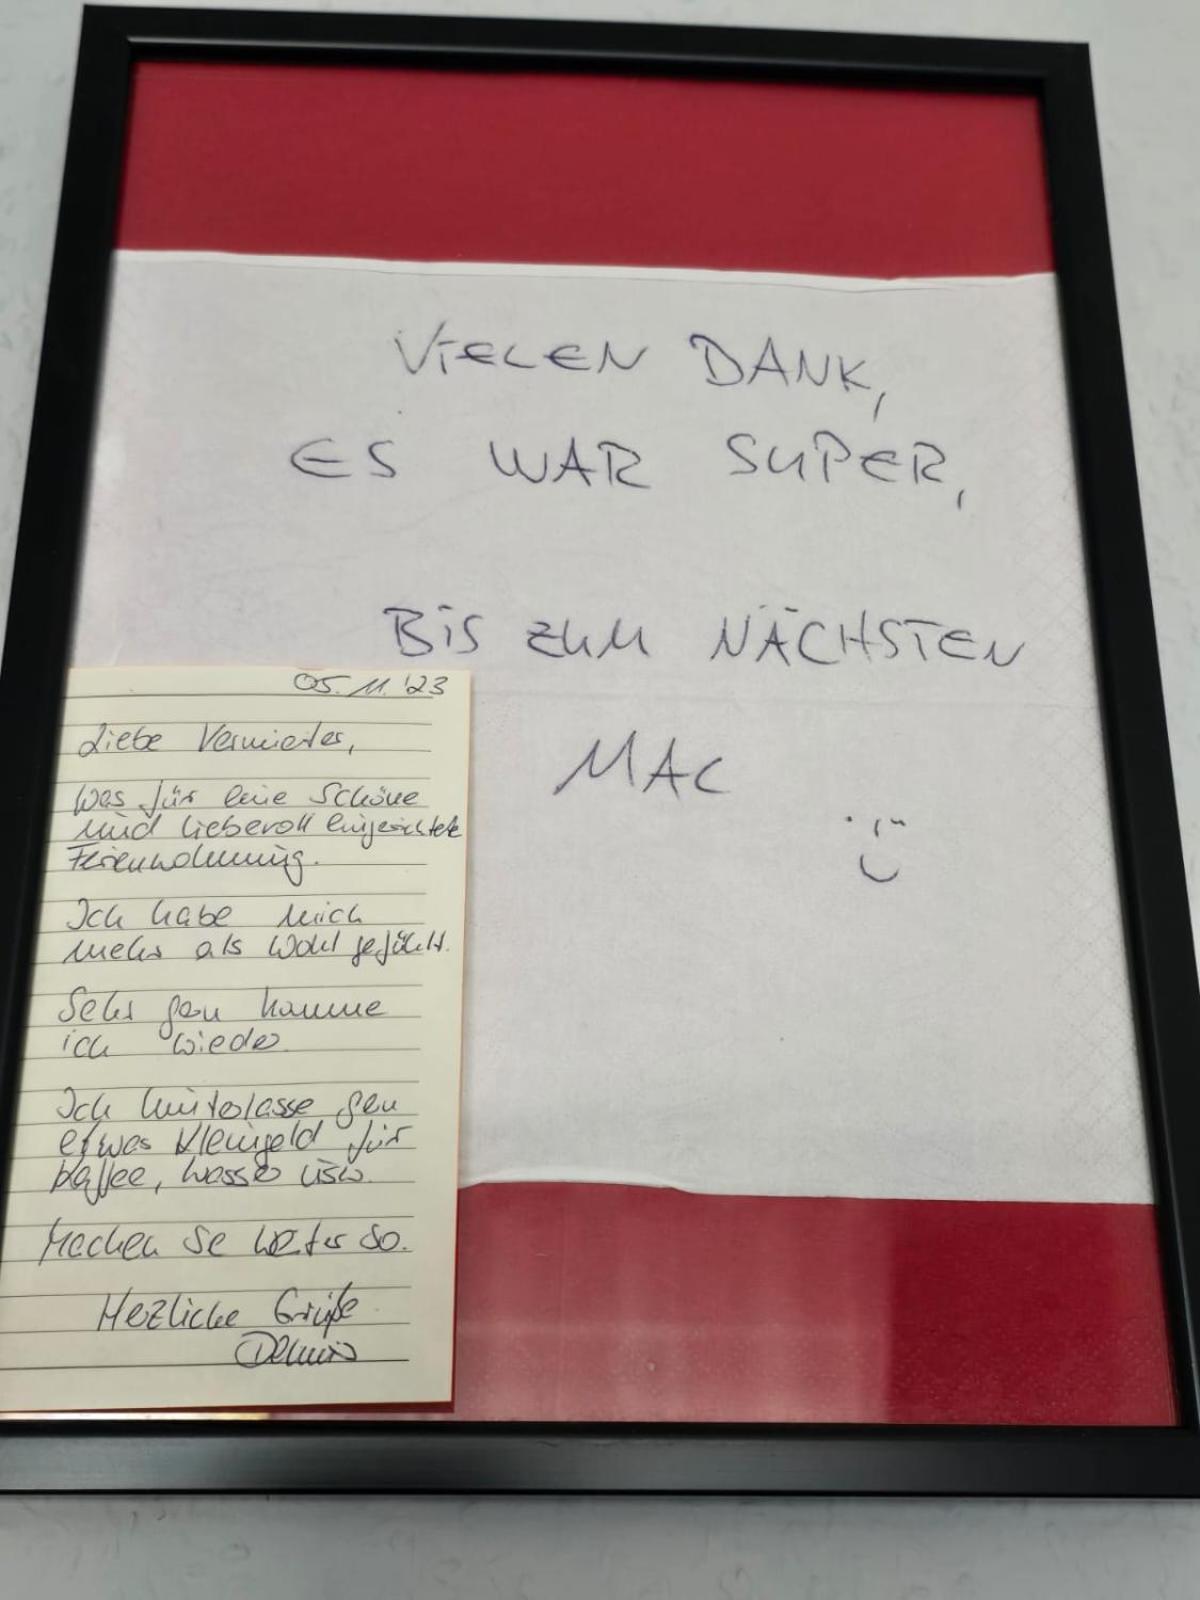 VIELEN DANK,
ES WAR SUPER,
BIS ZUM NÄCHSTEN
MAL
05.11.'23
Liebe Vermieter,
Was für eine schöne
und liebevoll eingerichtete
Ferienwohnung.
Ich habe mich
mehr als wohl gefühlt.
Sehr gern komme
ich wieder.
Ich hinterlasse gern
etwas Kleingeld für
Kaffee, Wasser usw.
Machen Sie weiter so.
Herzliche Grüße
Dennis